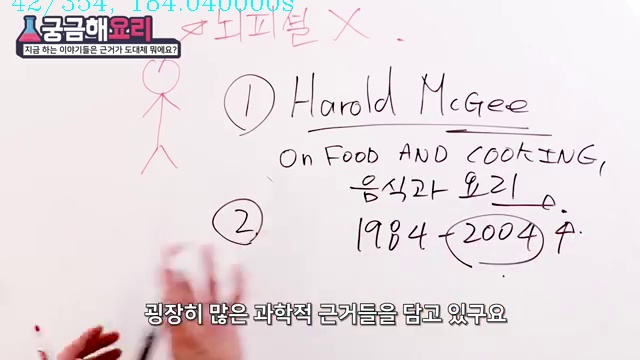 42/354, 184.040000s
궁금해요리
지금 하는 이야기들은 근거가 도대체 뭐에요?
뇌피셜 X
① Harold McGee
On FOOD AND COOKING,
음식과 요리
② 1984-2004
굉장히 많은 과학적 근거들을 담고 있구요